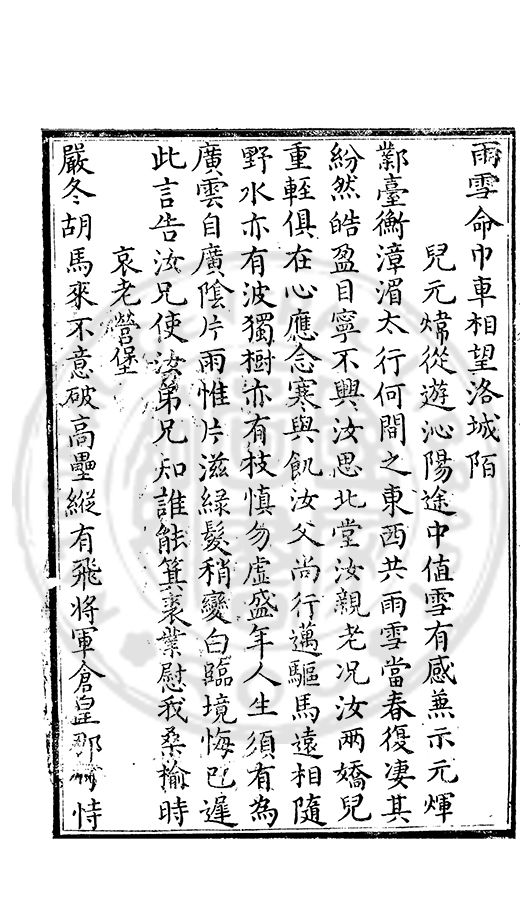 雨雪命巾車相望洛城陌
兒元煒從遊沁陽途中值雪有感兼示元煇
鄴臺衡漳湄太行何間之東西共雨雪當春復凄其
紛然皓盈目寧不興汝思北堂汝親老况汝两嬌兒
重輕俱在心應念寒與飢汝父尚行邁驅馬遠相隨
野水亦有波獨樹亦有枝慎勿虛盛年人生須有為
廣雲自廣陰片雨惟片滋綠髮稍變白臨境悔已遲
此言告汝兄使汝弟兄知誰能箕裘業慰我桑榆時
哀老營堡
嚴冬胡馬來不意破高壘縱有飛將軍倉皇那恃